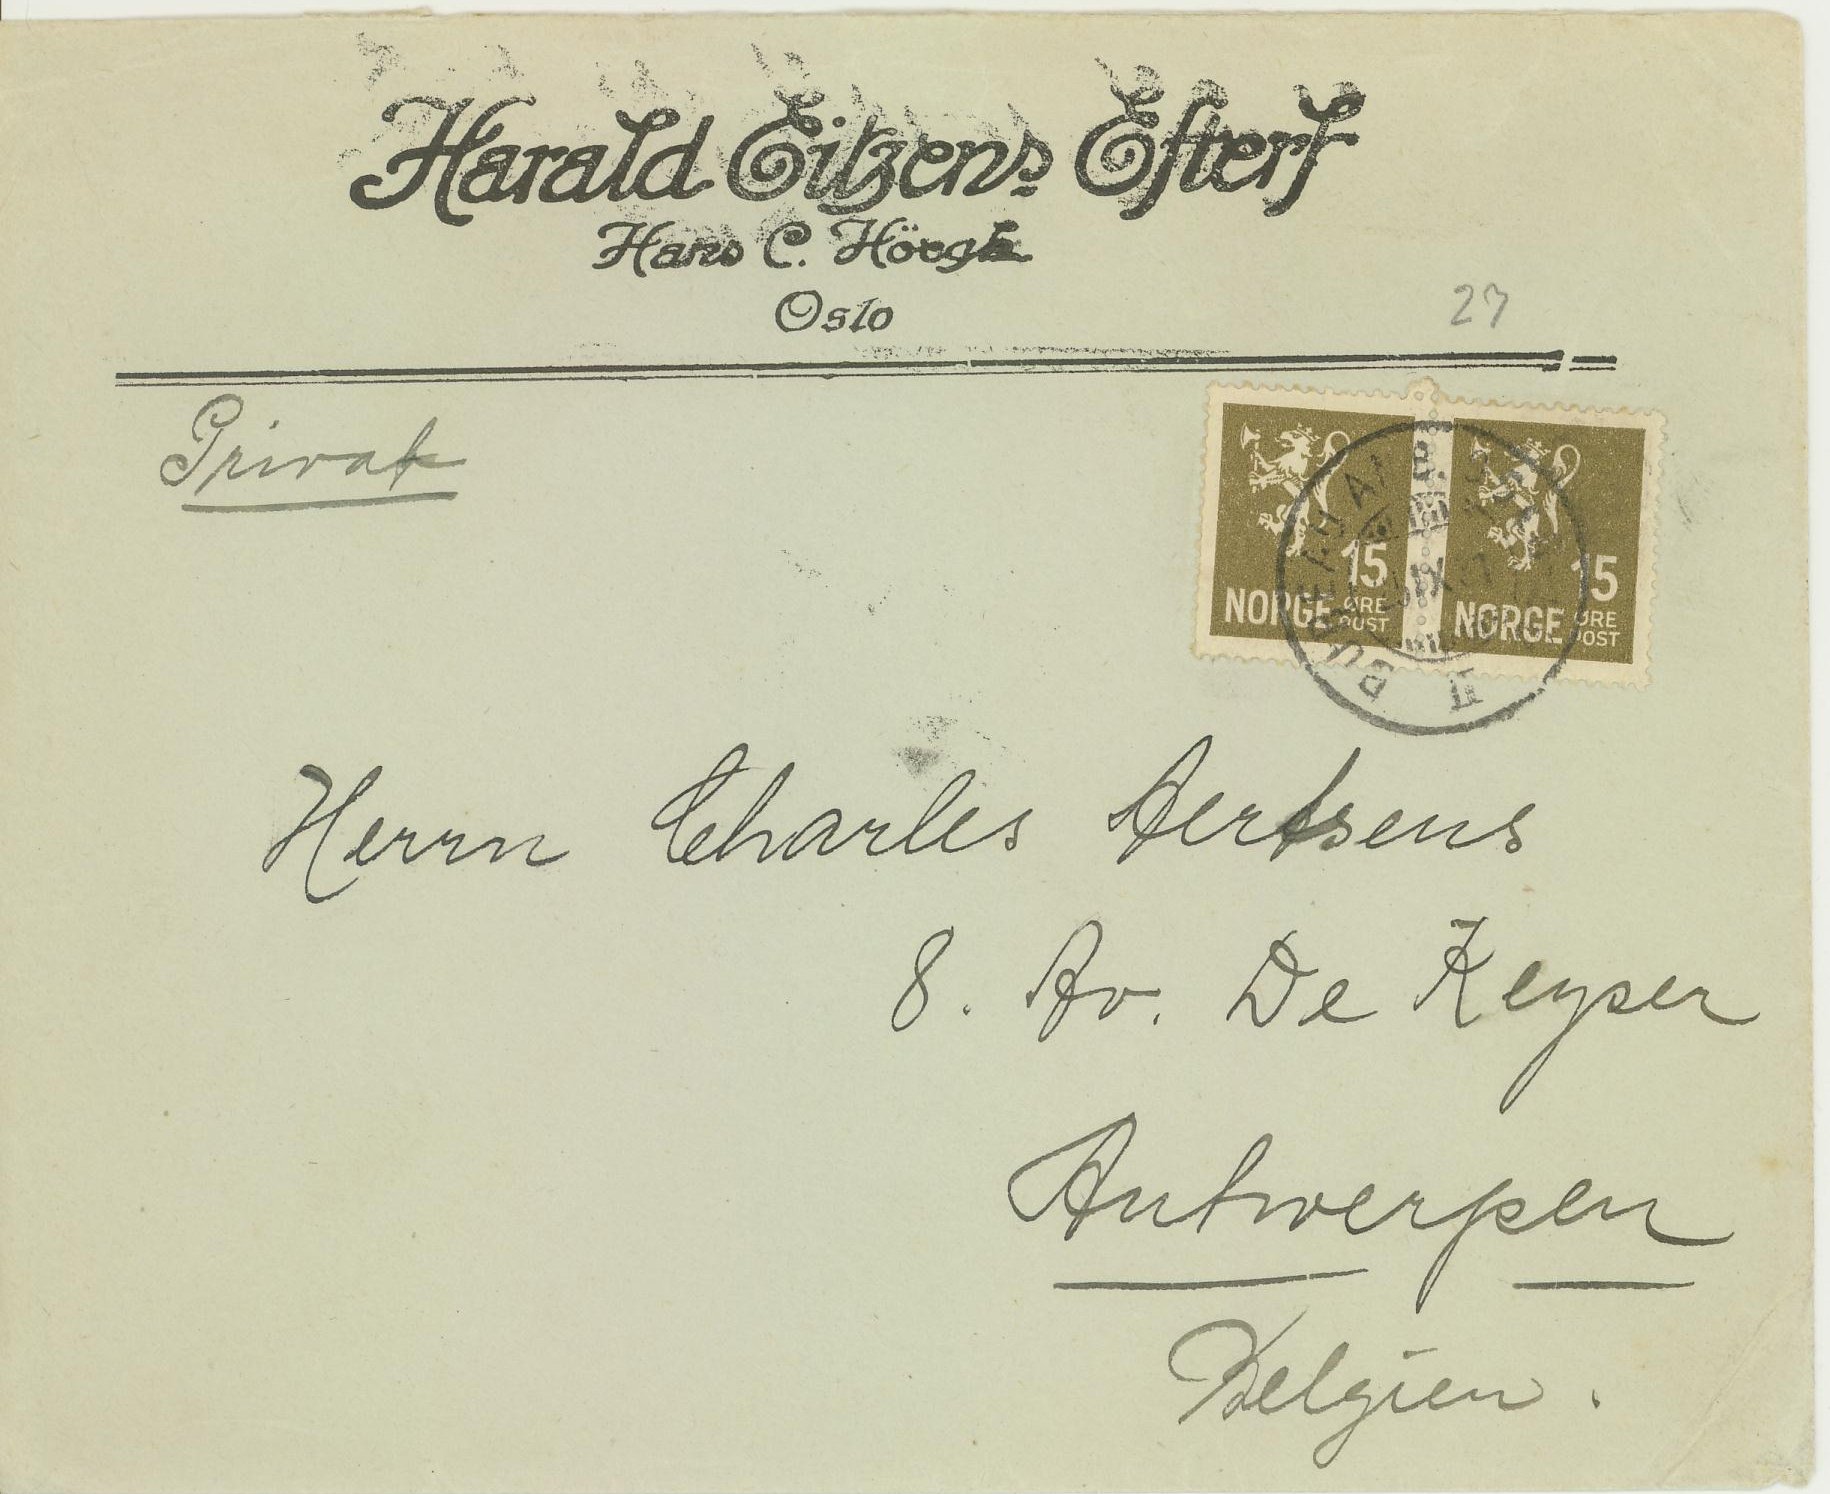 Harald Eitzens Efterf
Hans C. Höegh
Oslo
27
Privat
15
NORGE ØRE
POST
15
NORGE ØRE
POST
II
Herrn Charles Aertsens
8. Av. De Keyser
Antwerpen
Belgien.